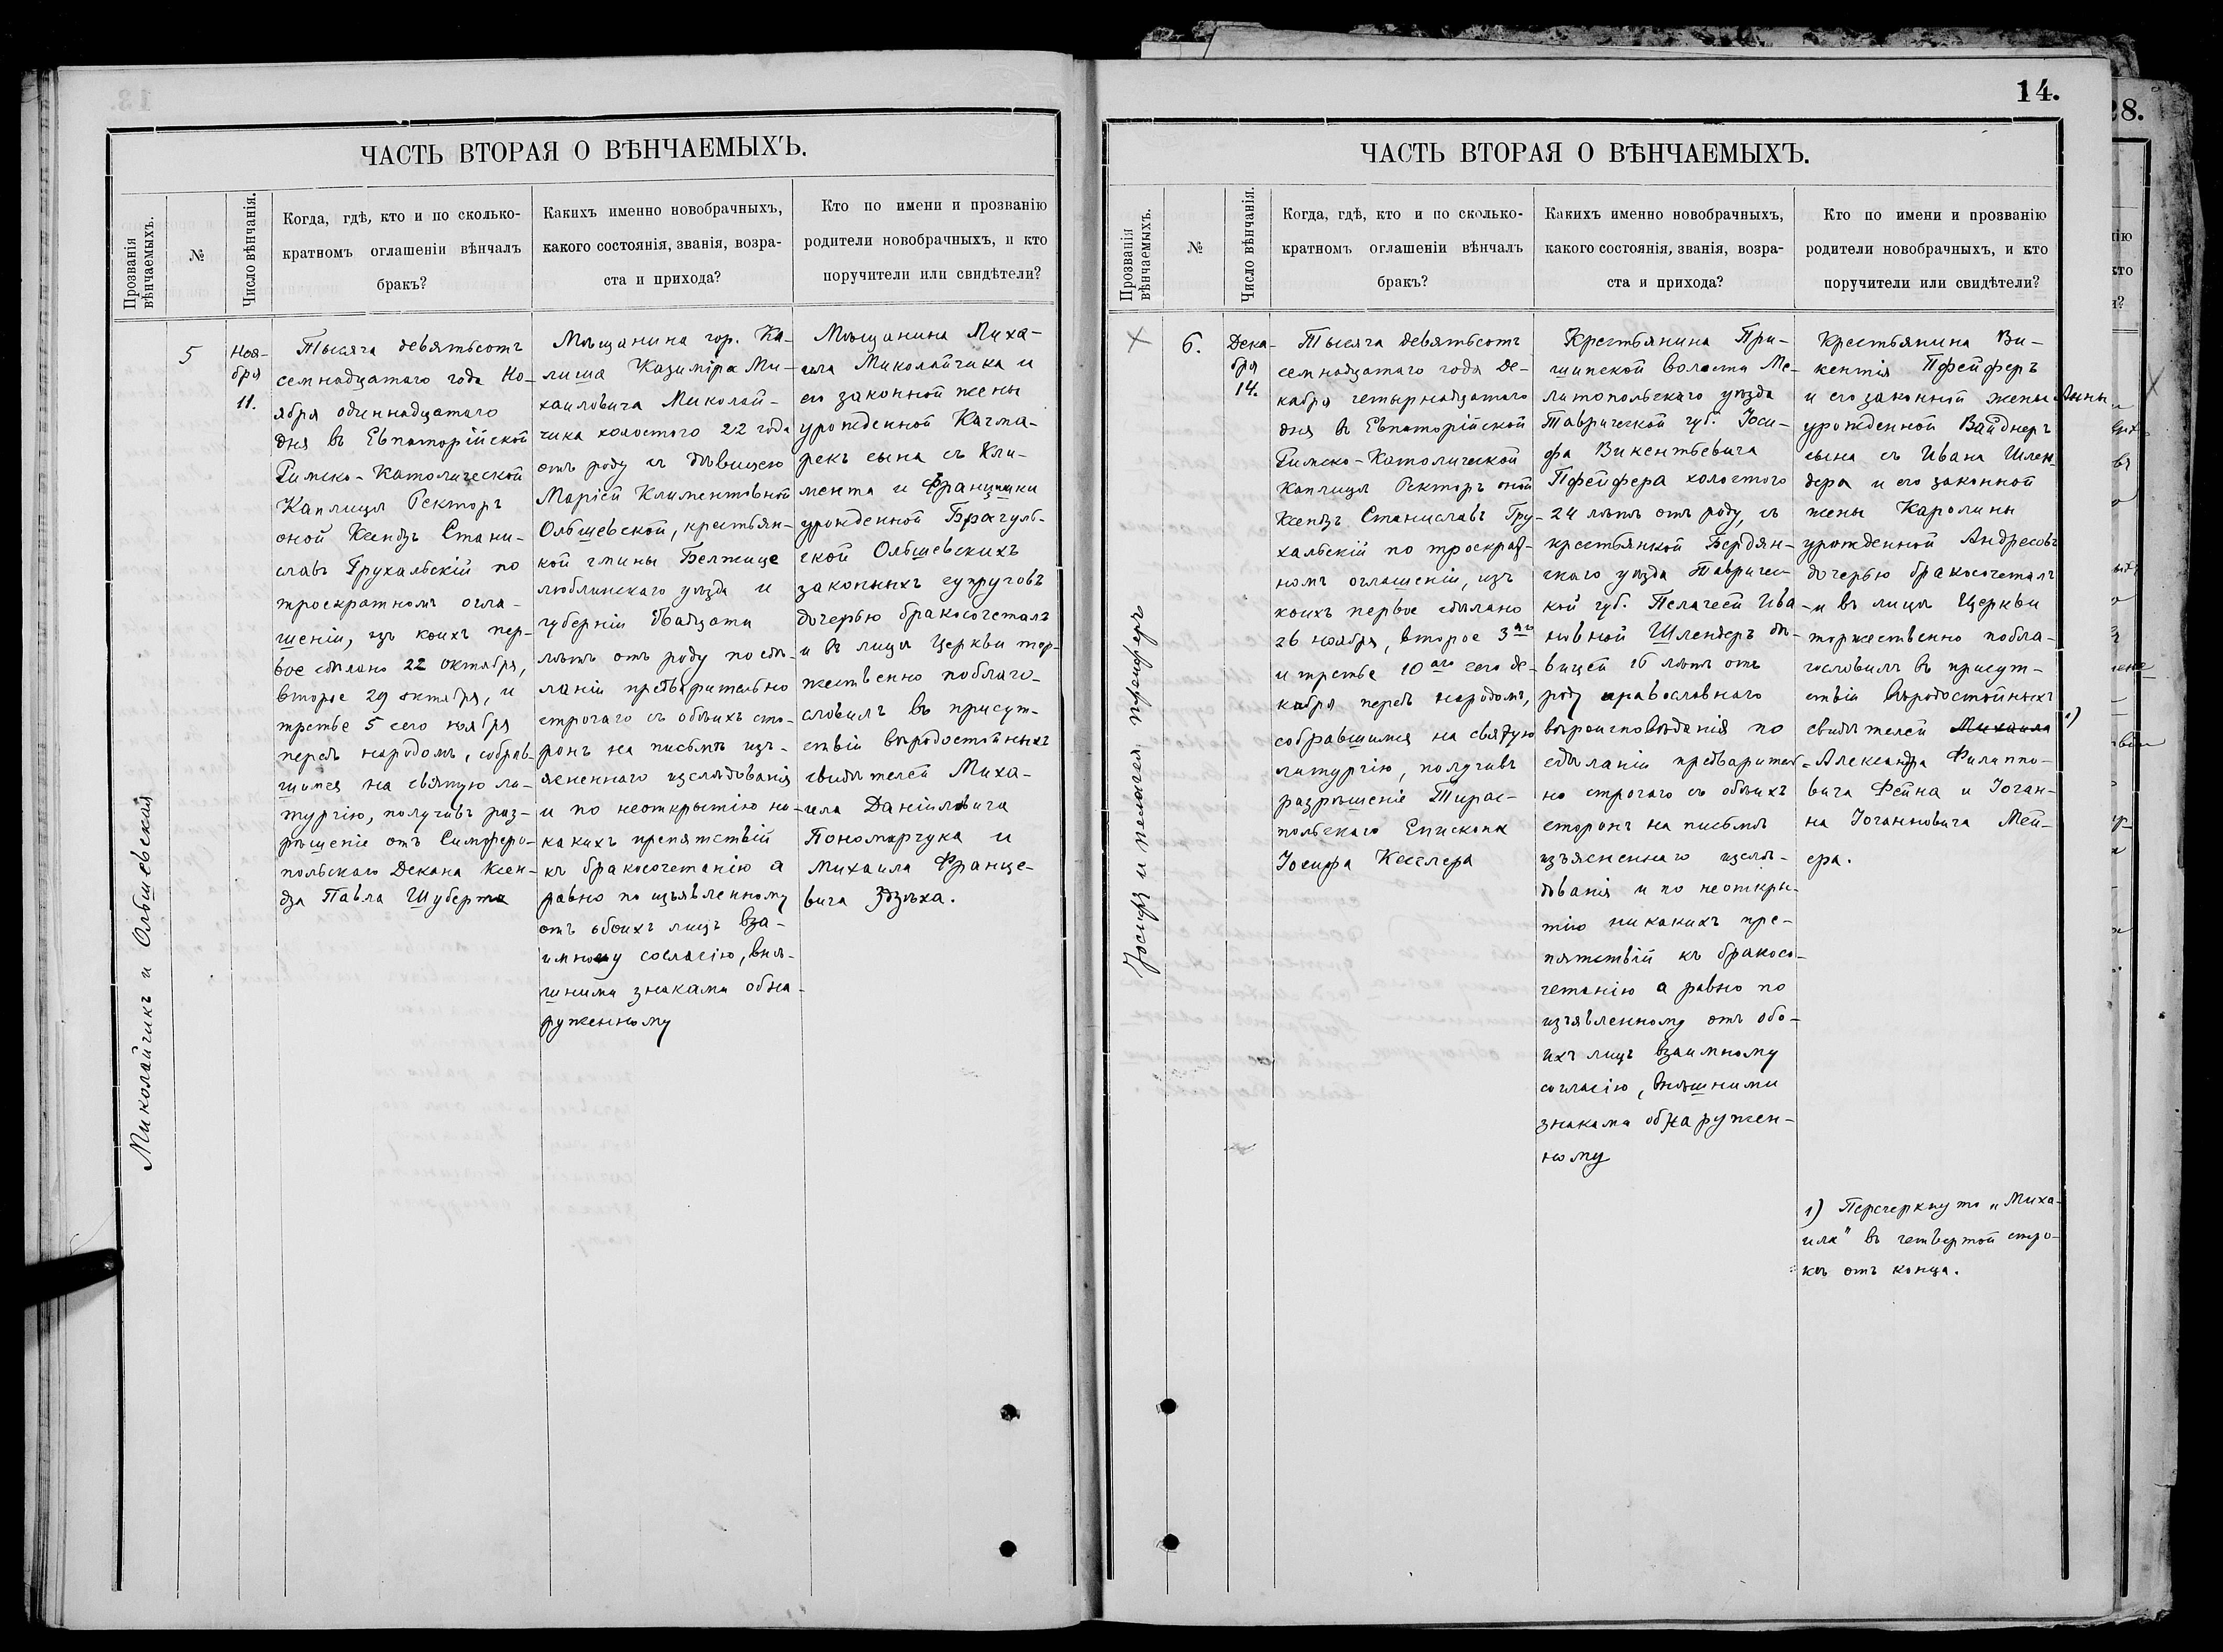 ЧАСТЬ ВТОРАЯ О ВѢНЧАЕМЫХЪ.
Прозванія
вѣнчаемыхъ.
№
Число вѣнчанія.
Когда, гдѣ, кто и по сколько-
кратномъ оглашеніи вѣнчалъ
бракъ?
Какихъ именно новобрачныхъ,
какого состоянія, званія, возра-
ста и прихода?
Кто по имени и прозванію
родители новобрачныхъ, и кто
поручители или свидѣтели?
Миколайчикъ и Ольшевская
5
Ноя-
бря
11.
Тысяча девятьсотъ
семнадцатаго года Но-
ября одиннадцатаго
дня въ Евпаторійской
Римско-Католической
Каплицѣ Ректоръ
оной Ксендзъ Стани-
славъ Грухальскій по
троекратномъ огла-
шеніи, изъ коихъ пер-
вое сдѣлано 22 октября,
второе 29 октября, и
третье 5 сего ноября
передъ народомъ, собрав-
шимся на святую ли-
тургію, получивъ раз-
рѣшеніе отъ Симферо-
польскаго Декана Ксен-
дза Павла Шуберта
Мѣщанина гор. Ка-
лиша Казиміра Ми-
хаиловича Миколай-
чика холостого 22 года
отъ роду съ дѣвицею
Маріей Климентовной
Ольшевской, крестьян-
кой гмины Белжице
люблинскаго уѣзда и
губерніи двадцати
лѣтъ отъ роду по сдѣ-
ланіи предварительно
строгаго съ обѣихъ сто-
ронъ на письмѣ изъ-
ясненнаго изслѣдованія
и по неоткрытію ни-
какихъ препятствій
къ бракосочетанію а
равно по изъявленному
отъ обоихъ лицъ вза-
имному согласію, внѣ-
шними знаками обна-
руженному
Мѣщанина Миха-
ила Миколайчика и
его законной жены
урожденной Качма-
рекъ сына съ Кли-
мента и Францишки
урожденной Брагуль-
ской Ольшевскихъ
законныхъ супруговъ
дочерью бракосочеталъ
и въ лицѣ Церкви тор-
жественно поблаго-
словилъ въ присут-
ствіи вѣродостойныхъ
свидѣтелей Миха-
ила Даніиловича
Пономарчука и
Михаила Франце-
вича Здзѣха.
14.
ЧАСТЬ ВТОРАЯ О ВѢНЧАЕМЫХЪ.
Прозванія
вѣнчаемыхъ.
№
Число вѣнчанія.
Когда, гдѣ, кто и по сколько-
кратномъ оглашеніи вѣнчалъ
бракъ?
Какихъ именно новобрачныхъ,
какого состоянія, званія, возра-
ста и прихода?
Кто по имени и прозванію
родители новобрачныхъ, и кто
поручители или свидѣтели?
Іосифъ и Пелагея Пфейферъ
6.
Дека-
бря
14.
Тысяча девятьсотъ
семнадцатаго года Де-
кабря четырнадцатаго
дня въ Евпаторійской
Римско-Католической
Каплицѣ Ректоръ оной
Ксендзъ Станиславъ Гру-
хальскій по троекрат-
номъ оглашеніи, изъ
коихъ первое сдѣлано
26 ноября, второе 3аго
и третье 10аго сего де-
кабря передъ народомъ,
собравшимся на святую
литургію, получивъ
разрѣшеніе Тирас-
польскаго Епископа
Іосифа Кесслера
Крестьянина При-
шипской волости Ме-
литопольскаго уѣзда
Таврической губ. Іоси-
фа Викентьевича
Пфейфера холостого
24 лѣтъ отъ роду, съ
крестьянкой Бердян-
скаго уѣзда Тавричес-
кой губ. Пелагеей Ива-
новной Шлендеръ дѣ-
вицей 16 лѣтъ отъ
роду православнаго
вѣроисповѣданія по
сдѣланіи предваритель-
но строгаго съ обѣихъ
сторонъ на письмѣ
изъясненнаго изслѣ-
дованія и по неоткры-
тію никакихъ пре-
пятствій къ бракосо-
четанію а равно по
изъявленному отъ обо-
ихъ лицъ взаимному
согласію, внѣшними
знаками обнаружен-
ному
Крестьянина Ви-
кентія Пфейферъ
и его законной жены Анны
урожденной Вайднеръ
сына съ Ивана Шлен-
дера и его законной
жены Каролины
урожденной Андресовъ
дочерью бракосочеталъ
и въ лицѣ Церкви
торжественно побла-
гословилъ въ присут-
ствіи вѣродостойныхъ
свидѣтелей Михаила 1)
Александра Филиппо-
вича Фейна и Іоган-
на Іоганновича Мей-
ера.
1) Перечеркнуто „Миха-
ила" въ четвертой стро-
кѣ отъ конца.
28.